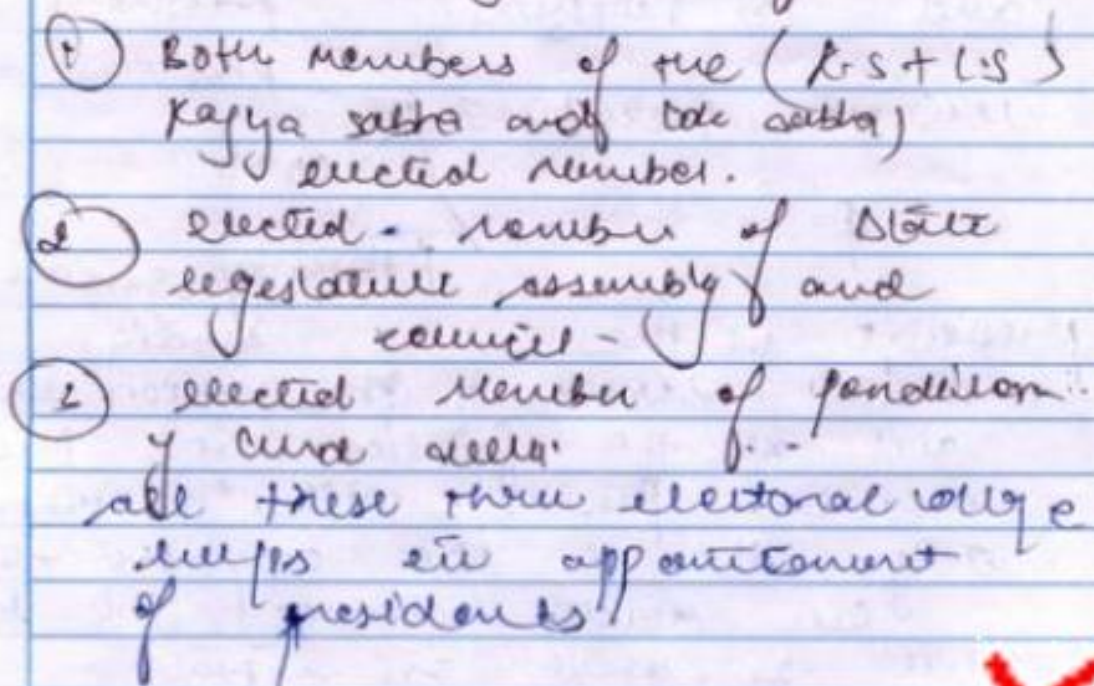 ① Both members of the (R.S + L.S)
Rajya sabha and Lok sabha)
elected member.
② elected. member of state
legeslature assembly and
council -
elected member of pondichery
y and delhi.
all these three electoral college
helps in appointement
of presidents